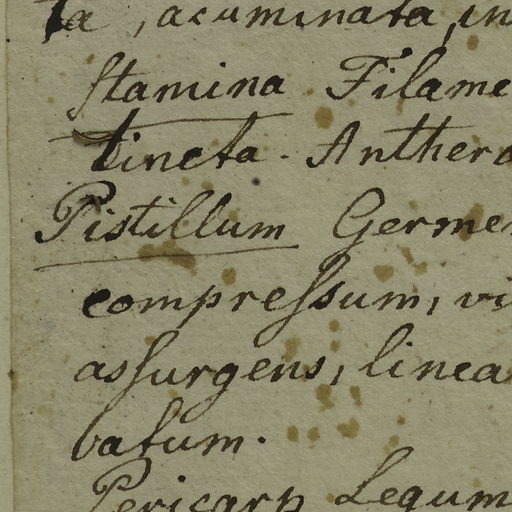 ta, acuminata, in
Stamina Filame
tincta. Anthera
Pistillum Germen
compressum, vi
assurgens, linea
batum.
Pericarp Legum